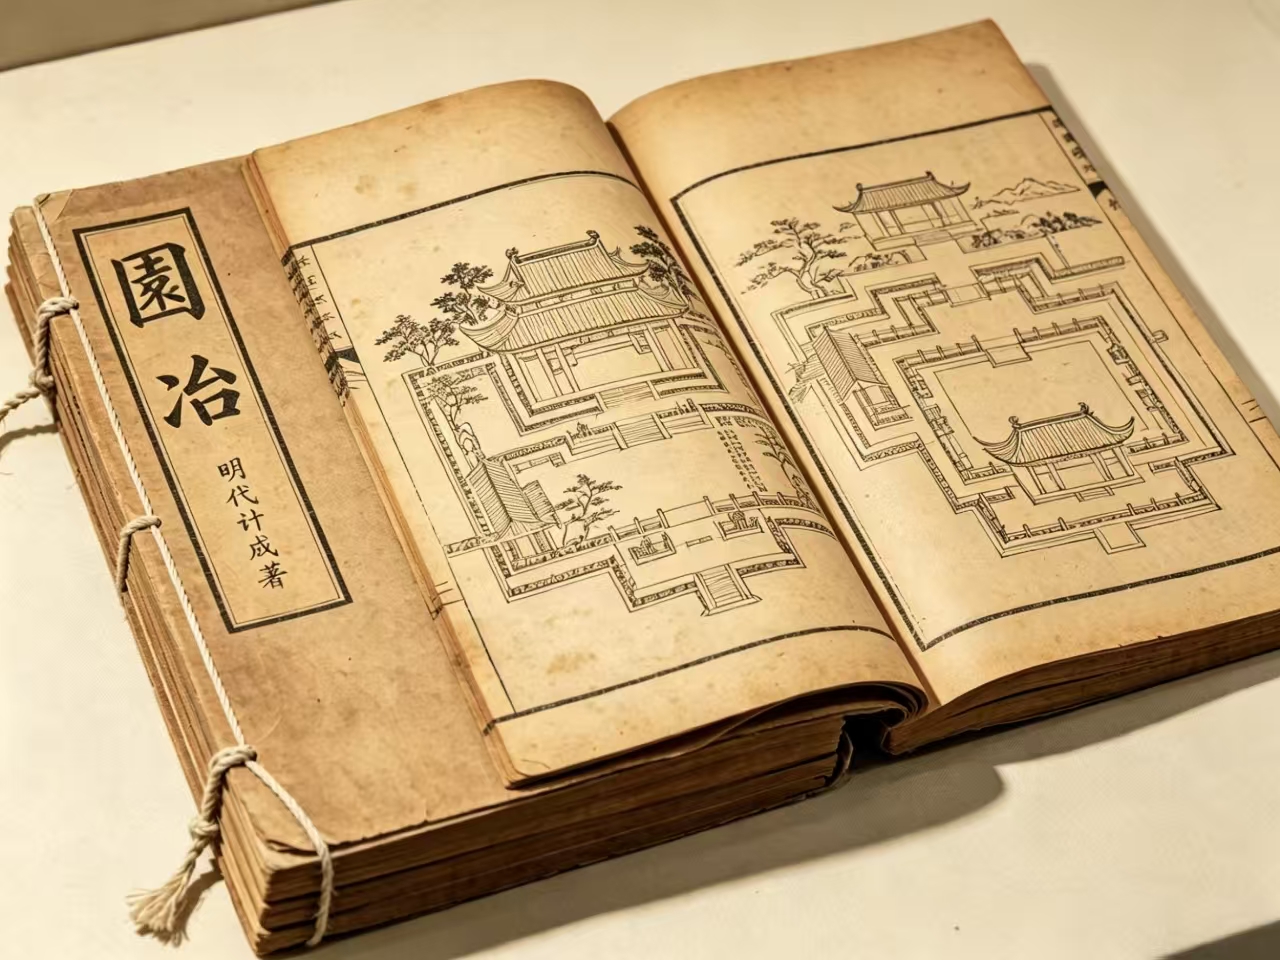 園
冶
明代计成著